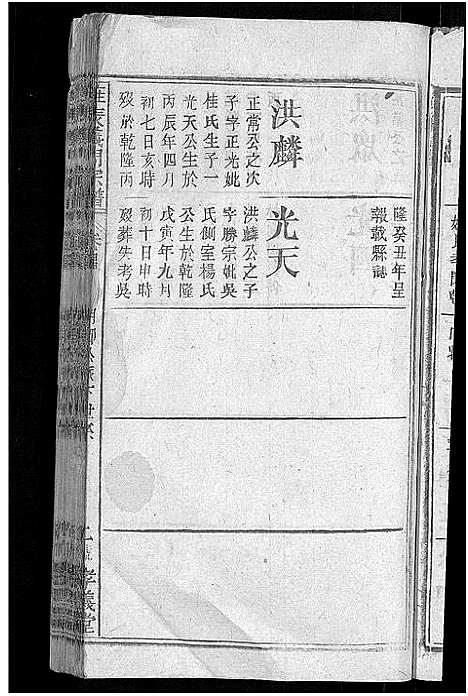 洪麟
正常公之次
子字正光妣
桂氏生子一
光天公生於
丙辰年四月
初七日亥時
歿於乾隆丙
隆癸丑年呈
報載縣誌
光天
洪麟公之子
字勝宗妣吳
氏側室楊氏
公生於乾隆
戊寅年九月
初十日申時
歿葬失考吳
孝義堂